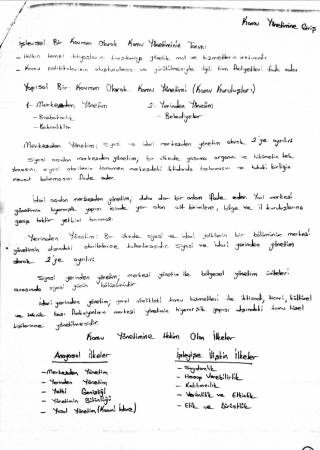 Kamu Yönetimine Giriş
İşlevsel Bir Kavram Olarak Kamu Yönetiminin Tanımı
- Halkın temel ihtiyaçlarını karşılamaya yönelik mal ve hizmetlerin üretimidir.
- Kamu politikalarının oluşturulması ve yürütülmesiyle ilgili tüm faaliyetleri ifade eder.
Yapısal Bir Kavram Olarak Kamu Yönetimi (Kamu Kuruluşları)
1- Merkezden Yönetim 2- Yerinden Yönetim
- Başbakanlık - Belediyeler
- Bakanlıklar
Merkezden Yönetim; siyasi ve idari merkezden yönetim olarak 2'ye ayrılır.
Siyasi açıdan merkezden yönetim, bir ülkede yasama organının ve hükümetin tek
olmasını, siyasi otoritenin tamamen merkezdeki iktidarda toplanmasını ve hukuki birliğin
mevcut bulunmasını ifade eder.
İdari açıdan merkezden yönetim, daha dar bir anlam ifade eder. Yani merkezi
yönetimin hiyerarşik yapısı içinde yer alan alt birimlere, bölge ve il kuruluşlarına
geniş takdir yetkisi tanımaz.
Yerinden Yönetim: Bir ülkede siyasi ve idari yetkilerin bir bölümünün merkezi
yönetimin dışındaki otoritelerce kullanılmasıdır. Siyasi ve idari yerinden yönetim
olarak 2'ye ayrılır:
Siyasi yerinden yönetim; merkezi yönetim ile bölgesel yönetim üniteleri
arasında siyasi gücün bölünmesidir.
İdari yerinden yönetim; yerel nitelikteki kamu hizmetleri ile iktisadi, ticari, kültürel
ve teknik bazı fonksiyonların merkezi yönetimin hiyerarşik yapısı dışındaki kamu tüzel
kişilerince yönetilmesidir.
Kamu Yönetimine Hâkim Olan İlkeler
Anayasal İlkeler İşleyişe İlişkin İlkeler
- Merkezden Yönetim - Saydamlık
- Yerinden Yönetim - Hesap Verebilirlik
- Yetki Genişliği - Katılımcılık
- Yönetimin Bütünlüğü - Verimlilik ve Etkinlik
- Yasal Yönetim (Kanuni İdare) - Etik ve Dürüstlük